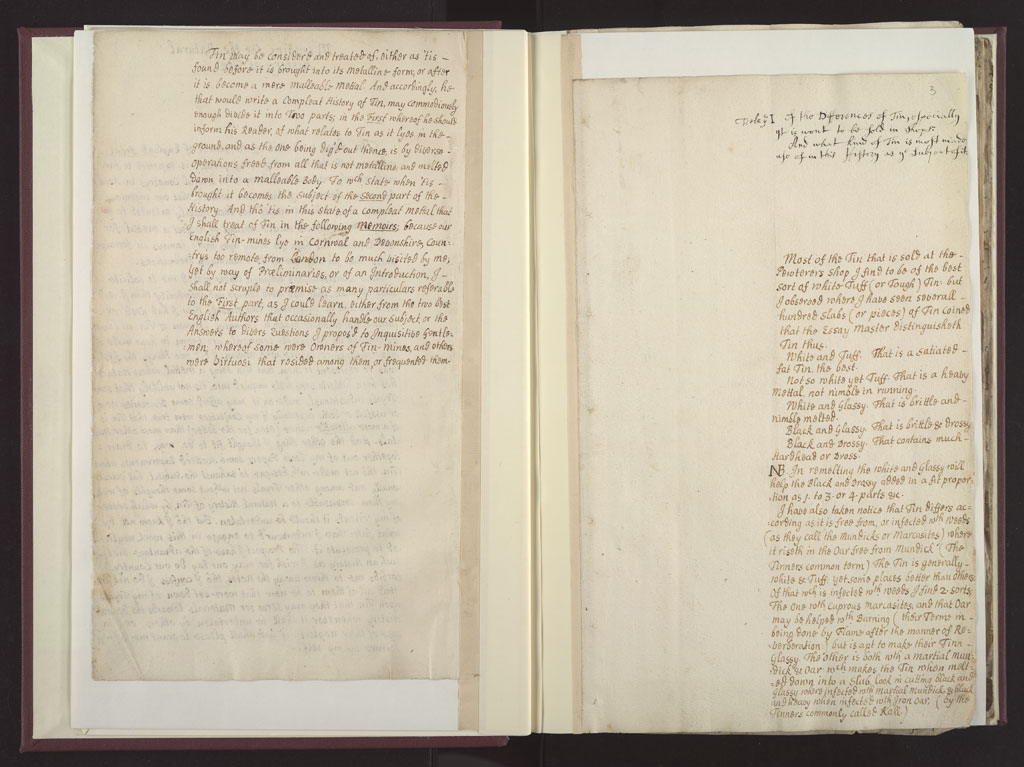 Tin may be consider'd and treated of, either as 'tis
found before it is brought into its Metalline form, or after
it is become a mere malleable Mettal And accordingly, he
that would write a Compleat History of Tin, may commodiously
enough divide it into Two parts; in the First whereof he should
inform his Reader, of what relates to Tin as it lyes in the
ground, and as the One being dig'd out thence, is by divers
operations freed from all that is not metalline, and melted
Down into a malleable Body. To wch state when 'tis
brought it becomes the Subject of the second part of the
History. And tho' tis in this state of a compleat Mettal that
I shall treat of Tin in the following Memoirs; because our
English Tin-mines lye in Cornwal and Devonshire, Coun-
trys too remote from London to be much visited by me,
yet by way of Præliminaries, or of an Introduction, I
shall not scruple to præmise as many particulars referable
to the First part, as I could learn, either from the two best
English Authors that occasionally handle our Subject, or the
Answers to divers Questions I propos'd to Inquisitive Gentle-
men, whereof some were Owners of Tin-Mines, and others
were Virtuosi that resided among them, or frequented them.
3
I Of the Diferences of Tin, especially
yt is wont to be sold in shops:
And what kind of Tin is most made
use of in this History as ye Subject of it
Most of the Tin that is sold at the
Pewterers shop I find to be of the best
sort of white Tuff (or Tough) Tin: but
I observed where I have seen severall
hundred slabs (or pieces) of Tin coined
that the Essay Master distinguisheth
Tin thus.
White and Tuff. That is a satiated
fat Tin, the best.
Not so white yet Tuff. That is a heavy
Mettal, not nimble in running.
White and Glassy. That is brittle and
nimble melted.
Black and Glassy. That is brittle & drossy
Black and Drossy. That contains much
Hardhead or Dross.
NB. In remelting the white and Glassy will
help the Black and Drassy added in a fit propor
tion as 1. to 3. or 4. parts &c.
I have also taken notice that Tin differs ac-
cording as it is free from, or infected wth weeds
(as they call the Mundicks or Marcasites) where
it riseth in the Oar free from Mundick (The
Tinners common term) The Tin is generally
white & Tuff. yet some places better than others
Of that wch is infected wth weeds I find 2. sorts,
The One wth Cuprous Marcasites, and that Oar
may be helped wth Burning (their Terme in
being done by Flame after the manner of Re-
verberation) but is apt to make their Tinn
Glassy. The other is both wth a martial Mun-
dick & Oar wch makes the Tin when melt-
ed down into a Slub, look in cutting black and
Glassy where infected wth martial Mundick, & black
and heavy when infected wth Iron Oar, (by the
Tinners commonly called Kall.)